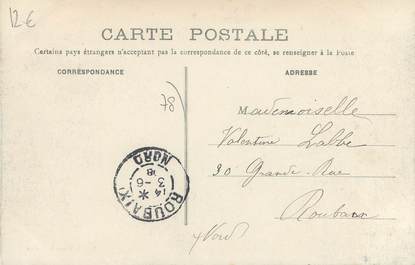 12€
CARTE POSTALE
Certains pays étrangers n'acceptant pas la correspondance de ce côté, se renseigner à la Poste
CORRESPONDANCE
ADRESSE
78
Mademoiselle
Valentine Labbe
30 Grande Rue
Roubaix
(Nord)
ROUBAIX
NORD
3-6